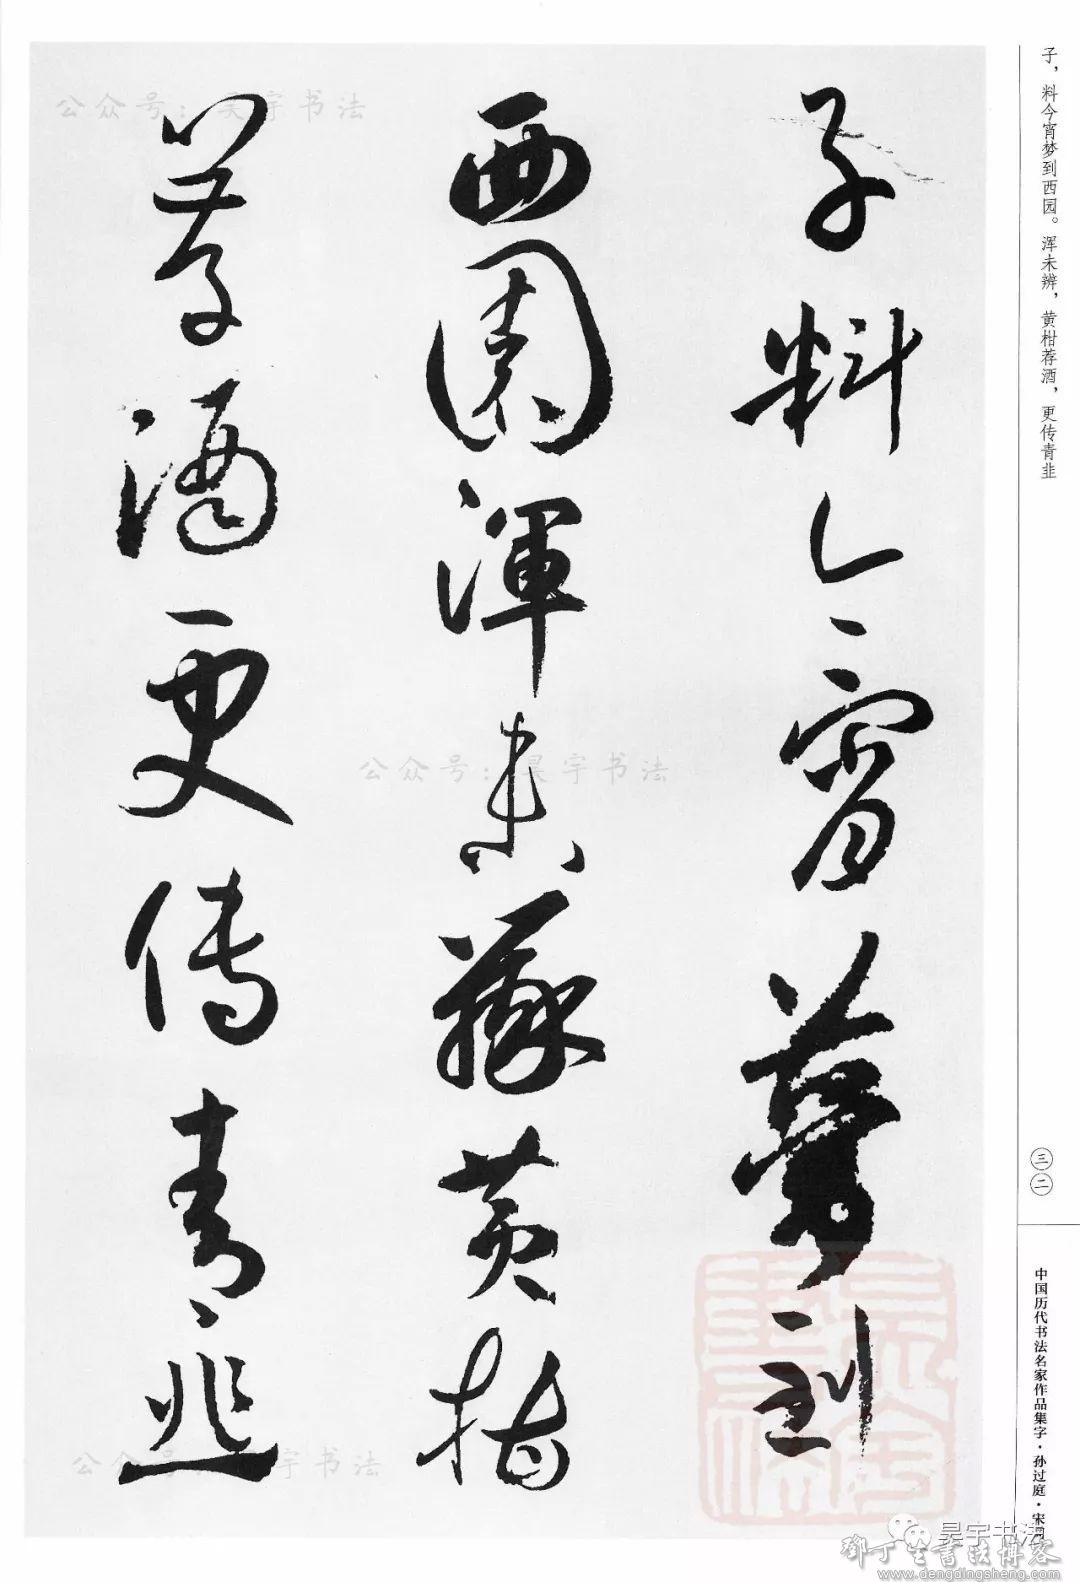 子，料今宵梦到西园。浑未辨，黄柑荐酒，更传青韭
子料今宵夢到
西園渾未辨黄柑
荐酒更傳青韭
三二
中国历代书法名家作品集字·孙过庭·宋词
公众号：昊宇书法
公众号：昊宇书法
公众号：昊宇书法
昊宇书法
鄧丁生書法博客
www.dengdingsheng.com